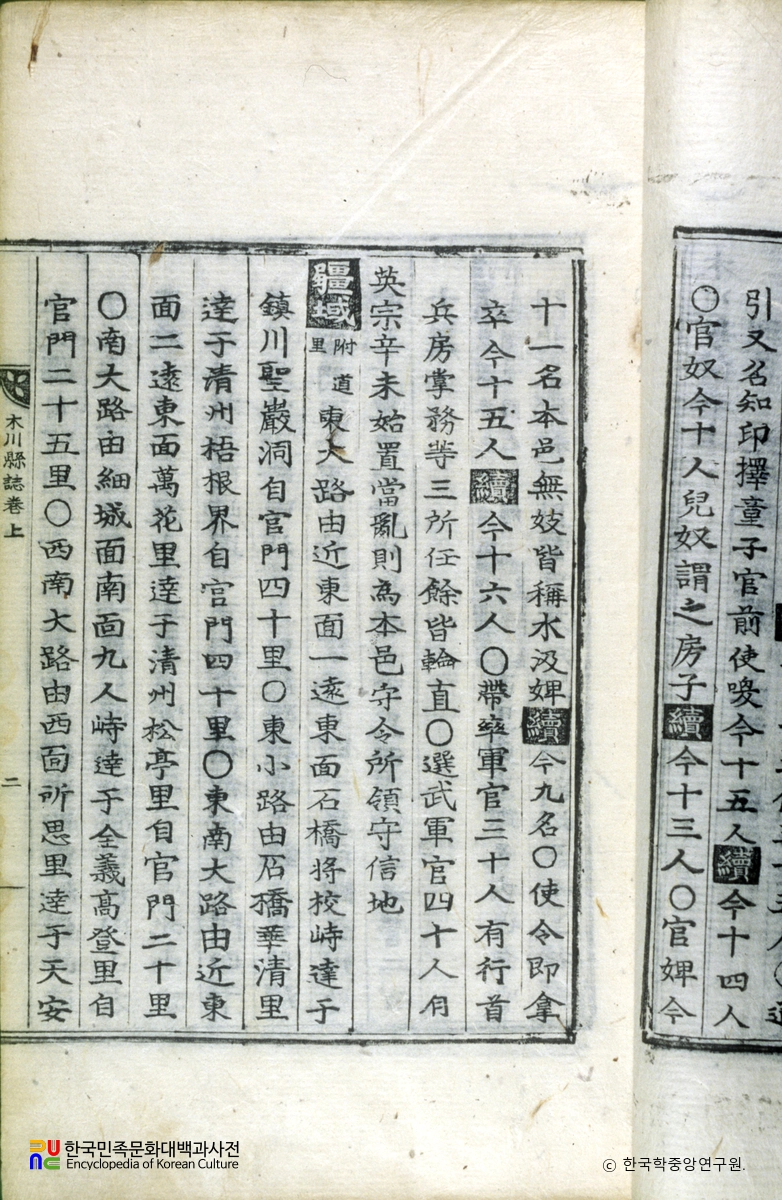 引又名知印擇童子官前使喚今十五人續今十四人
○官奴今十人兒奴謂之房子續今十三人○官婢今
十一名本邑無妓皆稱水汲婢續今九名○使令即拿
卒今十五人續今十六人○帶率軍官三十人有行首
兵房掌務等三所任餘皆輪直○選武軍官四十人自
英宗辛未始置當亂則為本邑守令所領守信地
疆域附道里東大路由近東面一遠東面石橋將校峙達于
鎮川聖巖洞自官門四十里○東小路由石橋華清里
達于清州梧根界自官門四十里○東南大路由近東
面二遠東面萬花里達于清州松亭里自官門二十里
○南大路由細城面南面九人峙達于全義高登里自
官門二十五里○西南大路由西面所思里達于天安
木川縣誌卷上
二
한국민족문화대백과사전
Encyclopedia of Korean Culture
ⓒ 한국학중앙연구원.